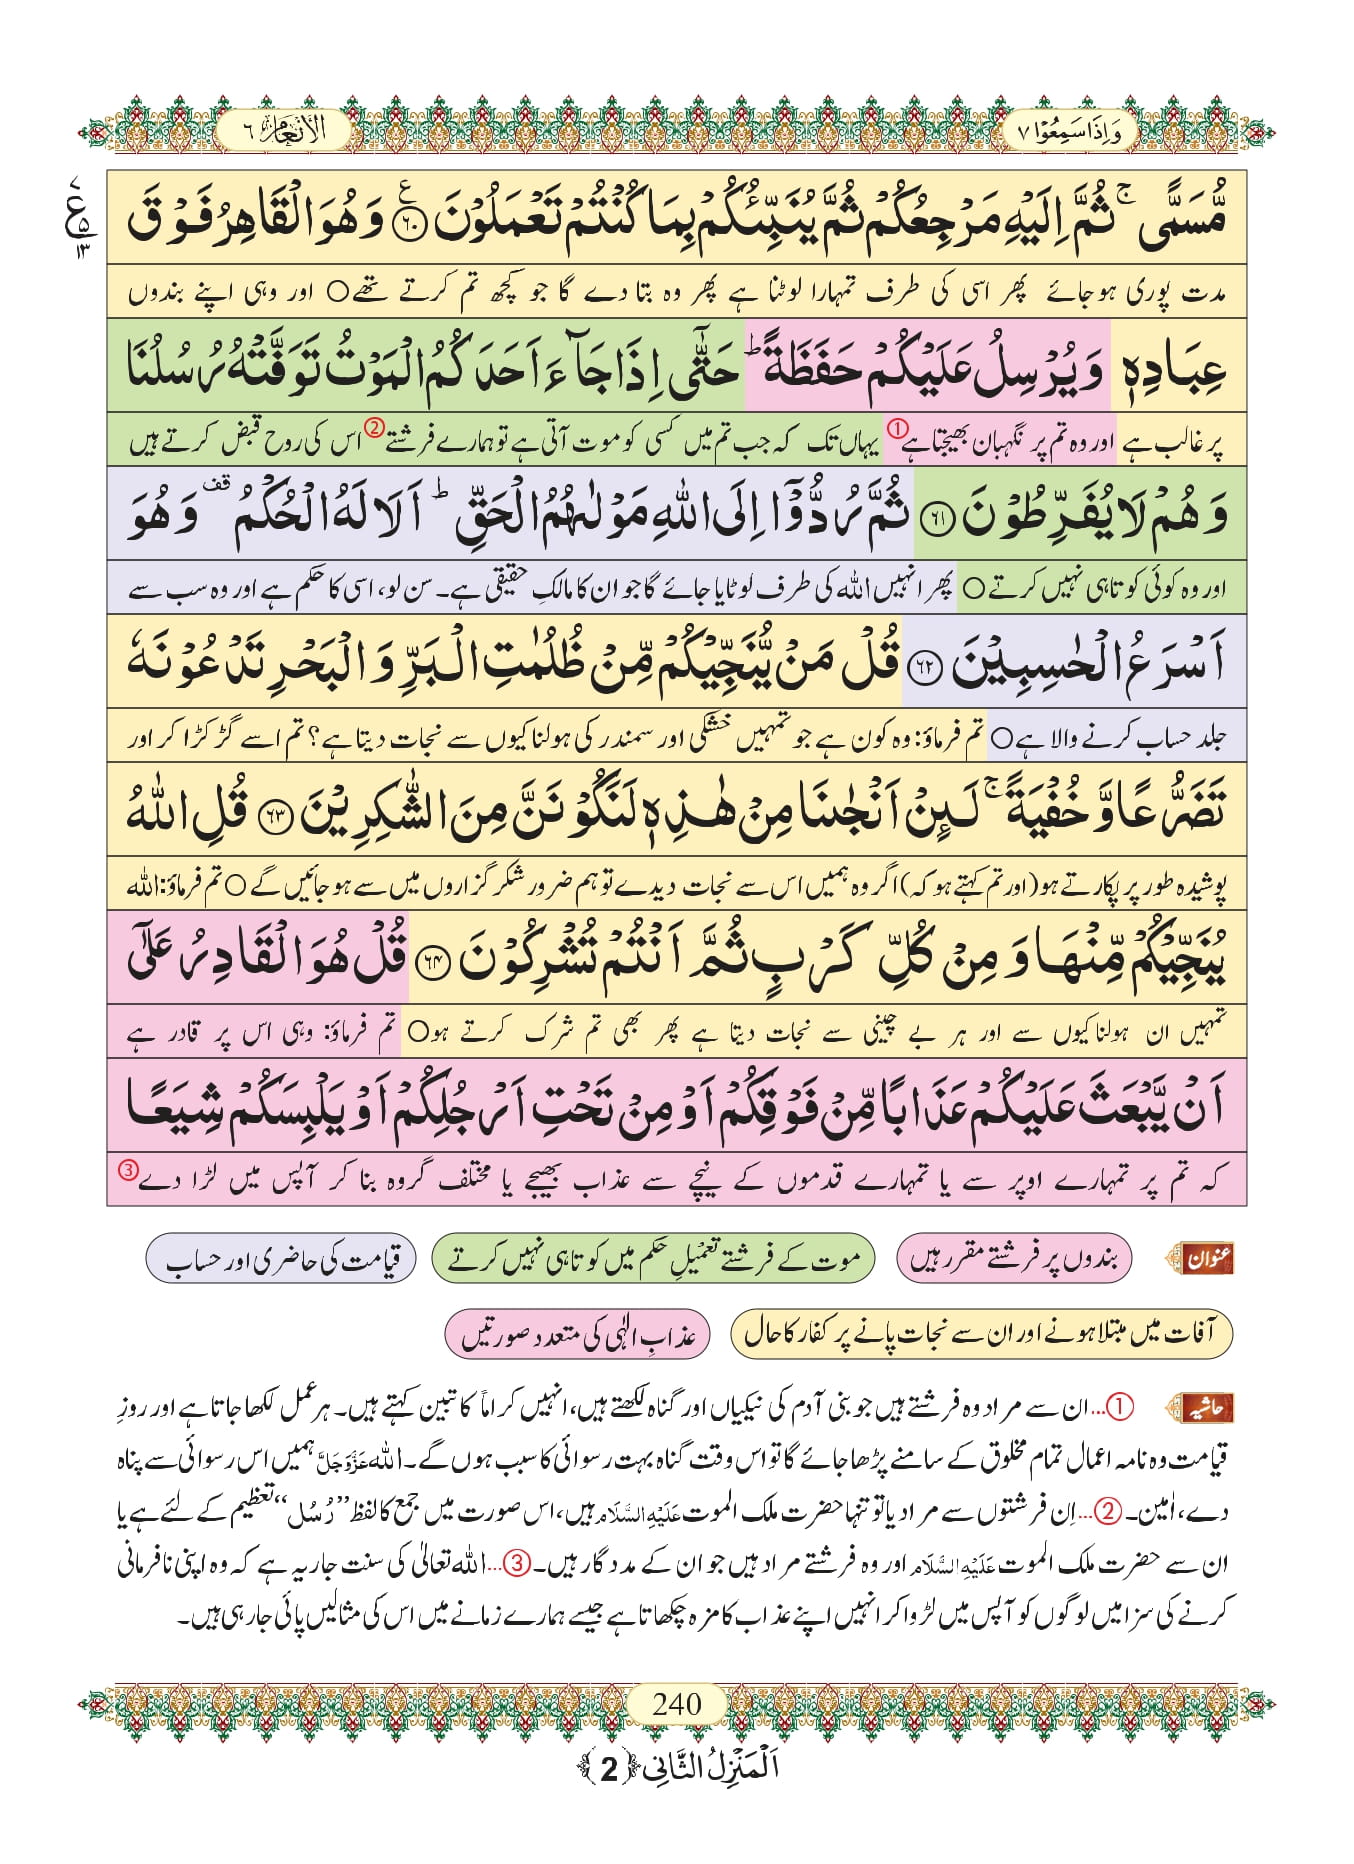 وَاِذَا سَمِعُوْا ٧
الأنعام ٦
مُّسَمًّى ۚ ثُمَّ اِلَیْهِ مَرْجِعُكُمْ ثُمَّ یُنَبِّئُكُمْ بِمَا كُنْتُمْ تَعْمَلُوْنَ ﴿۶۰﴾ ع وَ هُوَ الْقَاهِرُ فَوْقَ
ع ٧ ٥ ١٣
مدت پوری ہوجائے پھر اسی کی طرف تمہارا لوٹنا ہے پھر وہ بتا دے گا جو کچھ تم کرتے تھے○ اور وہی اپنے بندوں
عِبَادِهٖ وَ یُرْسِلُ عَلَیْكُمْ حَفَظَةً ؕ حَتّٰۤى اِذَا جَآءَ اَحَدَكُمُ الْمَوْتُ تَوَفَّتْهُ رُسُلُنَا
پر غالب ہے اور وہ تم پر نگہبان بھیجتا ہے① یہاں تک کہ جب تم میں کسی کو موت آتی ہے تو ہمارے فرشتے② اس کی روح قبض کرتے ہیں
وَ هُمْ لَا یُفَرِّطُوْنَ ﴿۶۱﴾ ثُمَّ رُدُّوْۤا اِلَى اللّٰهِ مَوْلٰىهُمُ الْحَقِّ ؕ اَلَا لَهُ الْحُكْمُ قف وَ هُوَ
اور وہ کوئی کوتاہی نہیں کرتے○ پھر انہیں اللہ کی طرف لوٹایا جائے گا جو ان کا مالکِ حقیقی ہے۔ سن لو، اسی کا حکم ہے اور وہ سب سے
اَسْرَعُ الْحٰسِبِیْنَ ﴿۶۲﴾ قُلْ مَنْ یُّنَجِّیْكُمْ مِّنْ ظُلُمٰتِ الْبَرِّ وَ الْبَحْرِ تَدْعُوْنَهٗ
جلد حساب کرنے والا ہے○ تم فرماؤ: وہ کون ہے جو تمہیں خشکی اور سمندر کی ہولناکیوں سے نجات دیتا ہے؟ تم اسے گڑگڑا کر اور
تَضَرُّعًا وَّ خُفْیَةً ۚ لَىِٕنْ اَنْجٰىنَا مِنْ هٰذِهٖ لَنَكُوْنَنَّ مِنَ الشّٰكِرِیْنَ ﴿۶۳﴾ قُلِ اللّٰهُ
پوشیدہ طور پر پکارتے ہو (اور تم کہتے ہو کہ) اگر وہ ہمیں اس سے نجات دیدے تو ہم ضرور شکر گزاروں میں سے ہوجائیں گے○ تم فرماؤ: اللہ
یُنَجِّیْكُمْ مِّنْهَا وَ مِنْ كُلِّ كَرْبٍ ثُمَّ اَنْتُمْ تُشْرِكُوْنَ ﴿۶۴﴾ قُلْ هُوَ الْقَادِرُ عَلٰۤى
تمہیں ان ہولناکیوں سے اور ہر بے چینی سے نجات دیتا ہے پھر بھی تم شرک کرتے ہو○ تم فرماؤ: وہی اس پر قادر ہے
اَنْ یَّبْعَثَ عَلَیْكُمْ عَذَابًا مِّنْ فَوْقِكُمْ اَوْ مِنْ تَحْتِ اَرْجُلِكُمْ اَوْ یَلْبِسَكُمْ شِیَعًا
کہ تم پر تمہارے اوپر سے یا تمہارے قدموں کے نیچے سے عذاب بھیجے یا مختلف گروہ بنا کر آپس میں لڑا دے③
عنوان بندوں پر فرشتے مقرر ہیں موت کے فرشتے تعمیلِ حکم میں کوتاہی نہیں کرتے قیامت کی حاضری اور حساب
آفات میں مبتلا ہونے اور ان سے نجات پانے پر کفار کا حال عذابِ الٰہی کی متعدد صورتیں
حاشیہ ①...ان سے مراد وہ فرشتے ہیں جو بنی آدم کی نیکیاں اور گناہ لکھتے ہیں، انہیں کراماً کاتبین کہتے ہیں۔ ہر عمل لکھا جاتا ہے اور روزِ
قیامت وہ نامہ اعمال تمام مخلوق کے سامنے پڑھا جائے گا تو اس وقت گناہ بہت رسوائی کا سبب ہوں گے۔ اللہ عَزَّوَجَلَّ ہمیں اس رسوائی سے پناہ
دے، اٰمین۔ ②...اِن فرشتوں سے مراد یا تو تنہا حضرت ملک الموت عَلَیْهِ السَّلَام ہیں، اس صورت میں جمع کا لفظ ”رُسُل“ تعظیم کے لئے ہے یا
ان سے حضرت ملک الموت عَلَیْهِ السَّلَام اور وہ فرشتے مراد ہیں جو ان کے مددگار ہیں۔ ③...اللہ تعالیٰ کی سنت جاریہ ہے کہ وہ اپنی نافرمانی
کرنے کی سزا میں لوگوں کو آپس میں لڑوا کر انہیں اپنے عذاب کا مزہ چکھاتا ہے جیسے ہمارے زمانے میں اس کی مثالیں پائی جارہی ہیں۔
240
اَلْمَنْزِلُ الثَّانِی ﴿2﴾